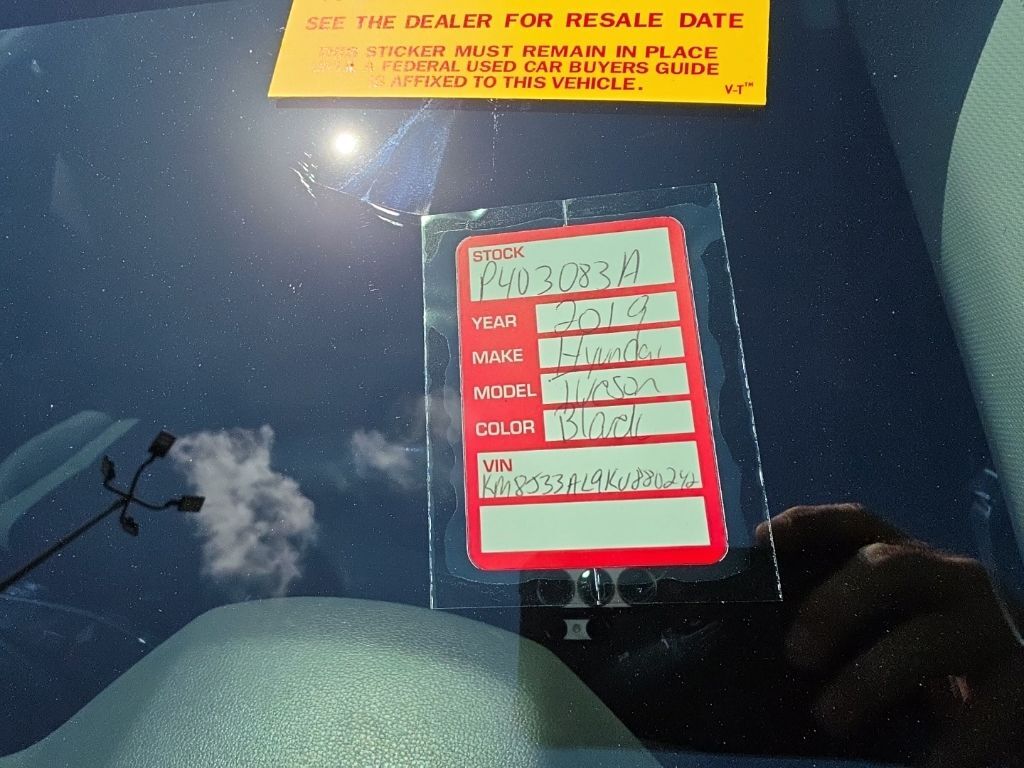 SEE THE DEALER FOR RESALE DATE
THIS STICKER MUST REMAIN IN PLACE
A FEDERAL USED CAR BUYERS GUIDE
IS AFFIXED TO THIS VEHICLE.
V-T™
STOCK
P403083A
YEAR 2019
MAKE Hyundai
MODEL Tucson
COLOR Black
VIN
KM8J33AL9KU880242